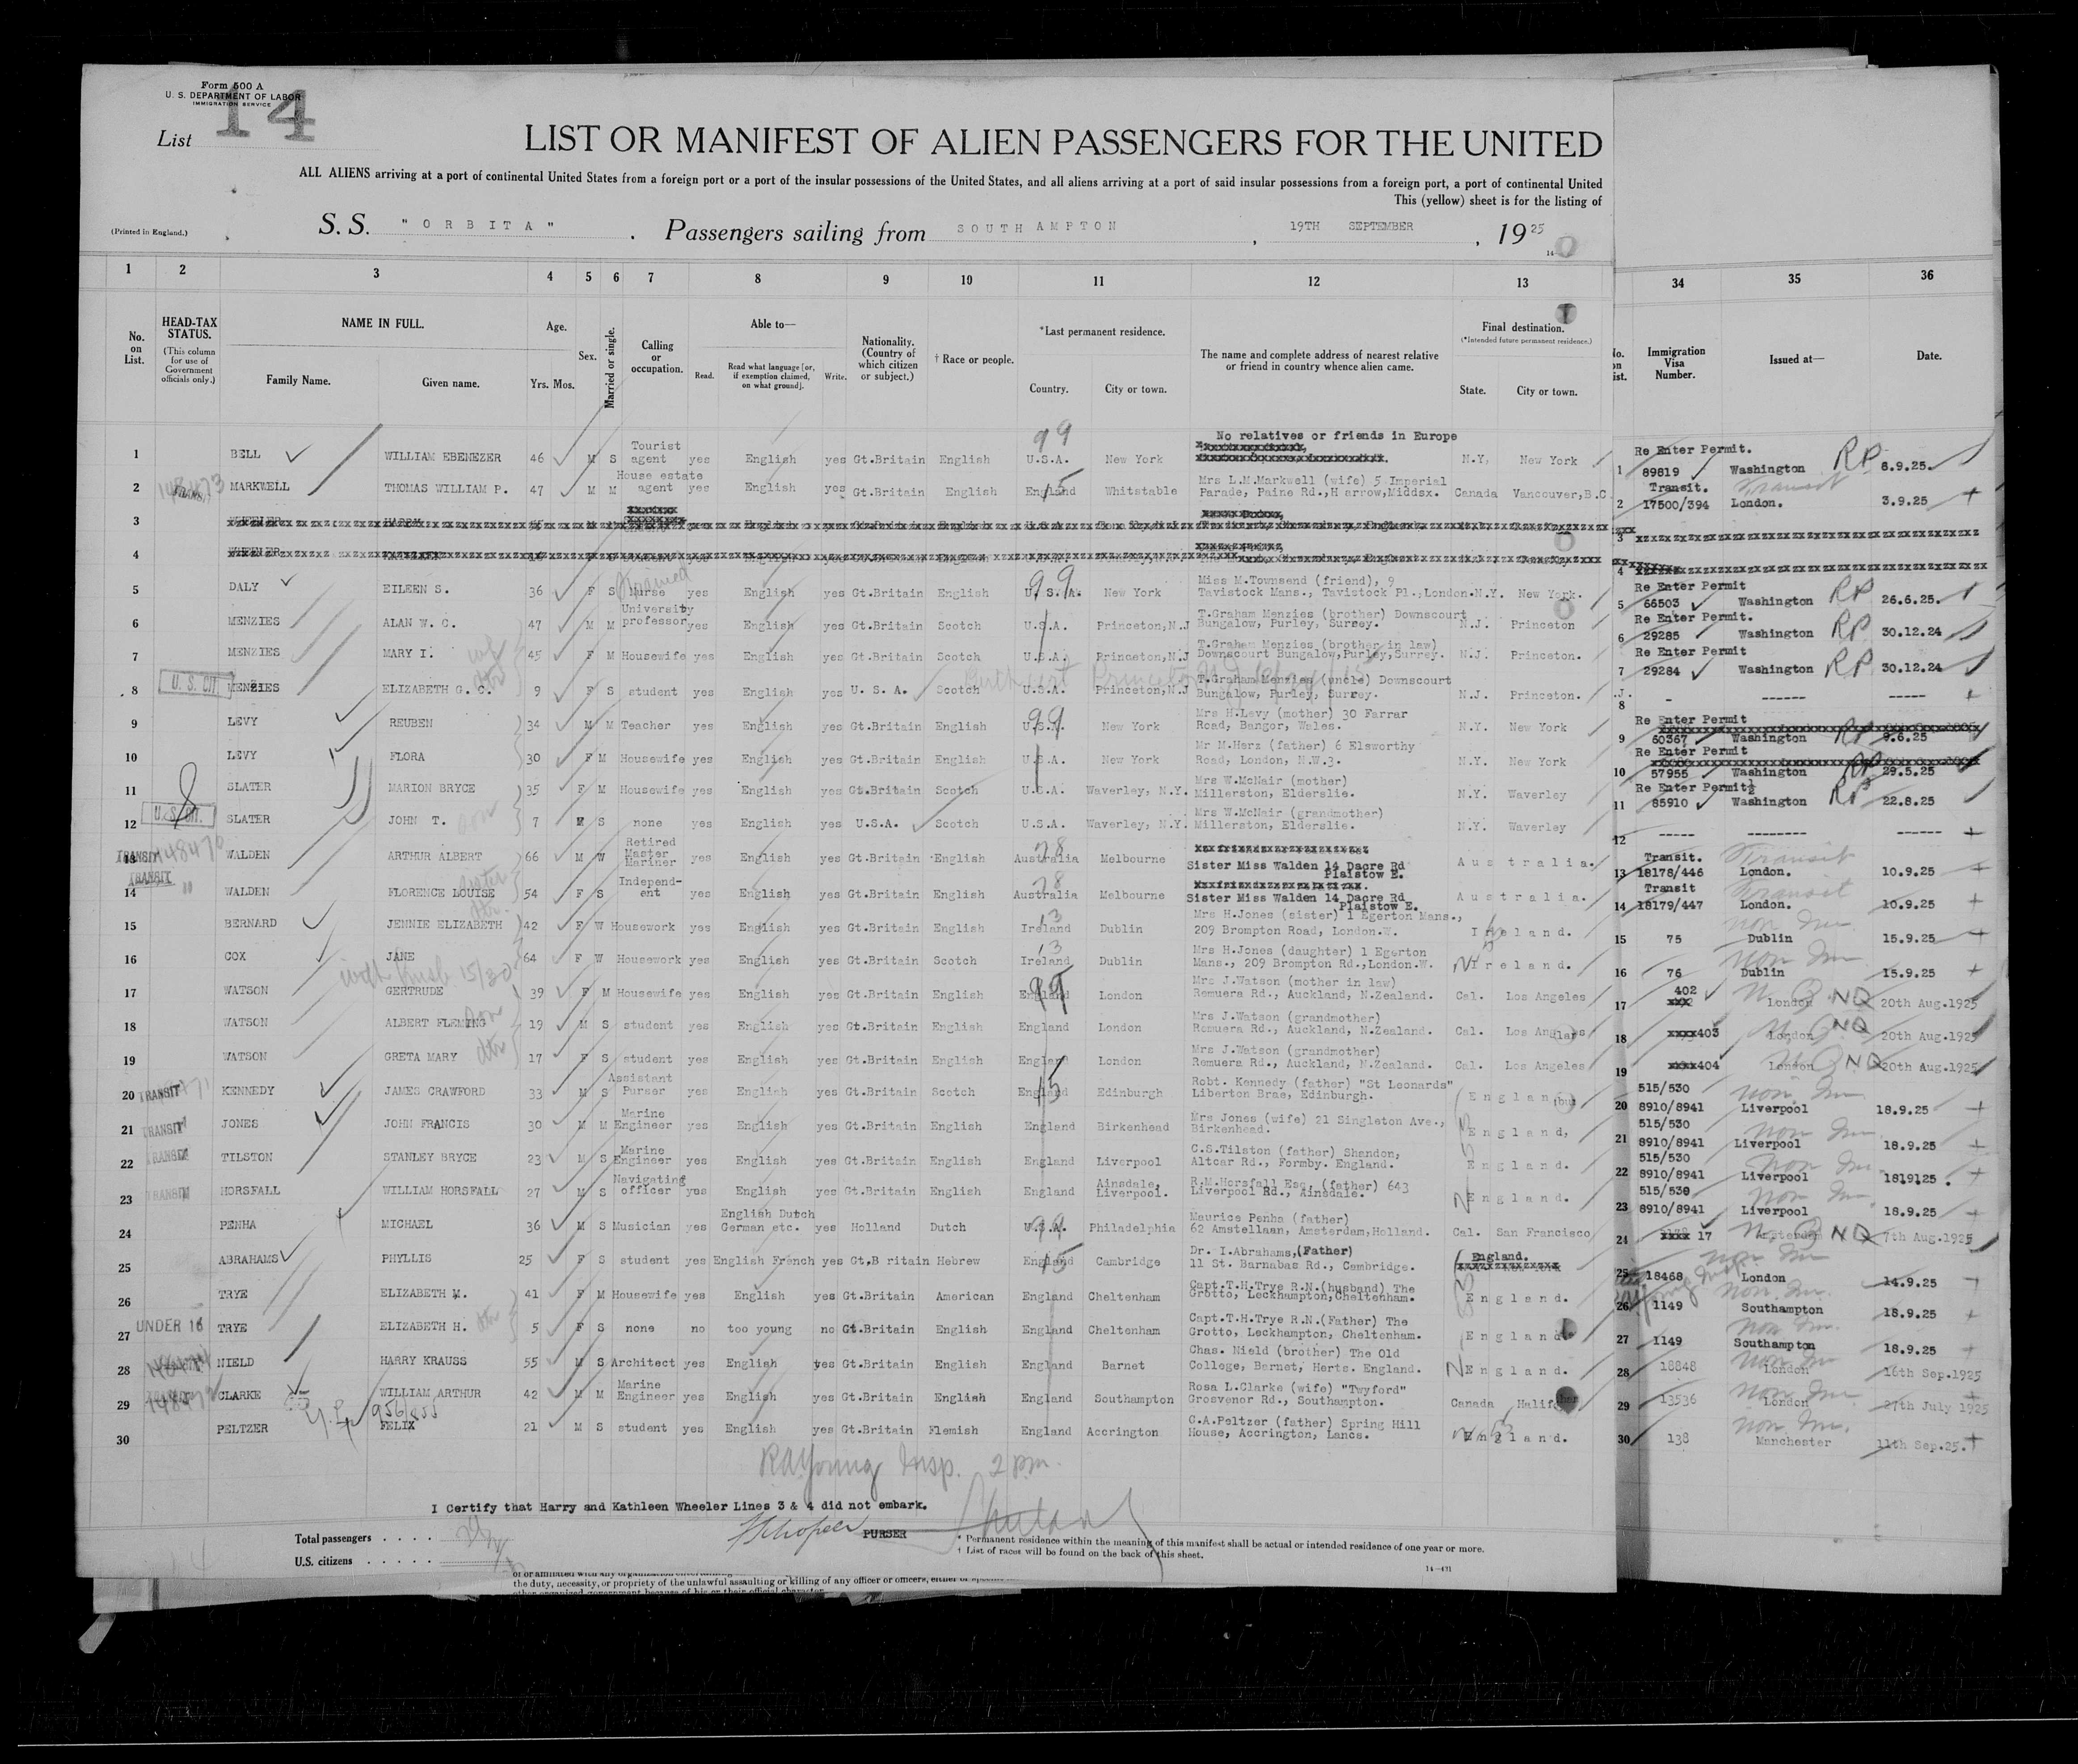 Form 500 A
U. S. DEPARTMENT OF LABOR
IMMIGRATION SERVICE
List 14
LIST OR MANIFEST OF ALIEN PASSENGERS FOR THE UNITED
ALL ALIENS arriving at a port of continental United States from a foreign port or a port of the insular possessions of the United States, and all aliens arriving at a port of said insular possessions from a foreign port, a port of continental United
This (yellow) sheet is for the listing of
(Printed in England.)
S. S. " O R B I T A " . Passengers sailing from S O U T H A M P T O N , 19TH SEPTEMBER , 19 25
1 2 3 4 5 6 7 8 9 10 11 12 13 34 35 36
No. on List.
HEAD-TAX STATUS. (This column for use of Government officials only.)
NAME IN FULL. Family Name. Given name.
Age. Yrs. Mos.
Sex.
Married or single.
Calling or occupation.
Able to— Read. Read what language [or, if exemption claimed, on what ground]. Write.
Nationality. (Country of which citizen or subject.)
† Race or people.
*Last permanent residence. Country. City or town.
The name and complete address of nearest relative or friend in country whence alien came.
Final destination. (*Intended future permanent residence.) State. City or town.
Immigration Visa Number.
Issued at—
Date.
1 BELL WILLIAM EBENEZER 46 M S Tourist agent yes English yes Gt.Britain English U.S.A. New York No relatives or friends in Europe N.Y. New York 1 Re Enter Permit. 89819 Washington RP 8.9.25.
2 MARKWELL THOMAS WILLIAM P. 47 M M House estate agent yes English yes Gt.Britain English England Whitstable Mrs L.M.Markwell (wife) 5 Imperial Parade, Paine Rd.,H arrow,Middsx. Canada Vancouver,B.C. 2 Transit. 17500/394 London. Transit 3.9.25
3 WHEELER HARRY
4 WHEELER KATHLEEN
5 DALY EILEEN S. 36 F S Nurse yes English yes Gt.Britain English U.S.A. New York Miss M.Townsend (friend), 9 Tavistock Mans., Tavistock Pl.,London. N.Y. New York. 5 Re Enter Permit 66503 Washington RP 26.6.25.
6 MENZIES ALAN W. C. 47 M M University professor yes English yes Gt.Britain Scotch U.S.A. Princeton,N.J T.Graham Menzies (brother) Downscourt Bungalow, Purley, Surrey. N.J. Princeton 6 Re Enter Permit. 29285 Washington RP 30.12.24
7 MENZIES MARY I. 45 F M Housewife yes English yes Gt.Britain Scotch U.S.A. Princeton,N.J T.Graham Menzies (brother in law) Downscourt Bungalow,Purley,Surrey. N.J. Princeton. 7 Re Enter Permit 29284 Washington RP 30.12.24
8 U. S. CIT. MENZIES ELIZABETH G. C. 9 F S student yes English yes U. S. A. Scotch U.S.A. Princeton,N.J T.Graham Menzies (uncle) Downscourt Bungalow, Purley, Surrey. N.J. Princeton. 8 - ------ -----
9 LEVY REUBEN 34 M M Teacher yes English yes Gt.Britain English U.S.A. New York Mrs H.Levy (mother) 30 Farrar Road, Bangor, Wales. N.Y. New York 9 Re Enter Permit 60367 Washington RP 9.6.25
10 LEVY FLORA 30 F M Housewife yes English yes Gt.Britain English U.S.A. New York Mr M.Herz (father) 6 Elsworthy Road, London, N.W.3. N.Y. New York 10 Re Enter Permit 57955 Washington RP 29.5.25
11 SLATER MARION BRYCE 35 F M Housewife yes English yes Gt.Britain Scotch U.S.A. Waverley, N.Y. Mrs W.McNair (mother) Millerston, Elderslie. N.Y. Waverley 11 Re Enter Permit 85910 Washington RP 22.8.25
12 U. S. CIT. SLATER JOHN T. 7 M S none yes English yes U.S.A. Scotch U.S.A. Waverley, N.Y. Mrs W.McNair (grandmother) Millerston, Elderslie. N.Y. Waverley 12 ----- -------- ------
13 TRANSIT WALDEN ARTHUR ALBERT 66 M W Retired Master Mariner yes English yes Gt.Britain English Australia Melbourne Sister Miss Walden 14 Dacre Rd Plaistow E. A u s t r a l i a. 13 Transit. 18178/446 London. Transit 10.9.25
14 TRANSIT " WALDEN FLORENCE LOUISE 54 F S Independ-ent yes English yes Gt.Britain English Australia Melbourne Sister Miss Walden 14 Dacre Rd Plaistow E. A u s t r a l i a. 14 Transit 18179/447 London. Transit 10.9.25
15 BERNARD JENNIE ELIZABETH 42 F W Housework yes English yes Gt.Britain English Ireland Dublin Mrs H.Jones (sister) 1 Egerton Mans., 209 Brompton Road, London.W. I r e l a n d. 15 75 Dublin 15.9.25
16 COX JANE 64 F W Housework yes English yes Gt.Britain Scotch Ireland Dublin Mrs H.Jones (daughter) 1 Egerton Mans., 209 Brompton Rd.,London.W. I r e l a n d. 16 76 Dublin 15.9.25
17 WATSON GERTRUDE 39 F M Housewife yes English yes Gt.Britain English England London Mrs J.Watson (mother in law) Remuera Rd., Auckland, N.Zealand. Cal. Los Angeles 17 402 London NQ 20th Aug.1925
18 WATSON ALBERT FLEMING 19 M S student yes English yes Gt.Britain English England London Mrs J.Watson (grandmother) Remuera Rd., Auckland, N.Zealand. Cal. Los Angeles 18 403 London NQ 20th Aug.1925
19 WATSON GRETA MARY 17 F S student yes English yes Gt.Britain English England London Mrs J.Watson (grandmother) Remuera Rd., Auckland, N.Zealand. Cal. Los Angeles 19 404 London NQ 20th Aug.1925
20 TRANSIT KENNEDY JAMES CRAWFORD 33 M S Assistant Purser yes English yes Gt.Britain Scotch England Edinburgh Robt. Kennedy (father) "St Leonards" Liberton Brae, Edinburgh. E n g l a n 20 515/530 8910/8941 Liverpool 18.9.25
21 TRANSIT JONES JOHN FRANCIS 30 M M Marine Engineer yes English yes Gt.Britain English England Birkenhead Mrs Jones (wife) 21 Singleton Ave., Birkenhead. E n g l a n d, 21 515/530 8910/8941 Liverpool 18.9.25
22 TRANSIT TILSTON STANLEY BRYCE 23 M S Marine Engineer yes English yes Gt.Britain English England Liverpool C.S.Tilston (father) Shandon, Altcar Rd., Formby. England. E n g l a n d. 22 515/530 8910/8941 Liverpool 1819125.
23 TRANSIT HORSFALL WILLIAM HORSFALL 27 M S Navigating officer yes English yes Gt.Britain English England Ainsdale, Liverpool. R.M.Horsfall Esq. (father) 643 Liverpool Rd., Ainsdale. E n g l a n d. 23 515/530 8910/8941 Liverpool 18.9.25
24 PENHA MICHAEL 36 M S Musician yes English Dutch German etc. yes Holland Dutch U.S.A. Philadelphia Maurice Penha (father) 62 Amstellaan, Amsterdam,Holland. Cal. San Francisco 24 17 Amsterdam NQ 7th Aug.1925
25 ABRAHAMS PHYLLIS 25 F S student yes English French yes Gt,B ritain Hebrew England Cambridge Dr. I.Abrahams,(Father) 11 St. Barnabas Rd., Cambridge. England. 25 18468 London 14.9.25
26 TRYE ELIZABETH M. 41 F M Housewife yes English yes Gt.Britain American England Cheltenham Capt.T.H.Trye R.N.(husband) The Grotto, Leckhampton,Cheltenham. E n g l a n d. 26 1149 Southampton 18.9.25
27 UNDER 16 TRYE ELIZABETH H. 5 F S none no too young no Gt.Britain English England Cheltenham Capt.T.H.Trye R.N.(Father) The Grotto, Leckhampton, Cheltenham. E n g l a n d 27 1149 Southampton 18.9.25
28 NIELD HARRY KRAUSS 55 M S Architect yes English yes Gt.Britain English England Barnet Chas. Nield (brother) The Old College, Barnet, Herts. England. E n g l a n d. 28 18848 London 16th Sep.1925
29 CLARKE WILLIAM ARTHUR 42 M M Marine Engineer yes English yes Gt.Britain English England Southampton Rosa L.Clarke (wife) "Twyford" Grosvenor Rd., Southampton. Canada Halif 29 13536 London 27th July 1925
30 PELTZER FELIX 21 M S student yes English yes Gt.Britain Flemish England Accrington C.A.Peltzer (father) Spring Hill House, Accrington, Lancs. E n g l a n d. 30 138 Manchester 11th Sep.25.
RAYoung Insp. 2 pm.
I Certify that Harry and Kathleen Wheeler Lines 3 & 4 did not embark.
PURSER
Total passengers . . . .
U.S. citizens . . . . .
* Permanent residence within the meaning of this manifest shall be actual or intended residence of one year or more.
† List of races will be found on the back of this sheet.
14—431
the duty, necessity, or propriety of the unlawful assaulting or killing of any officer or officers,